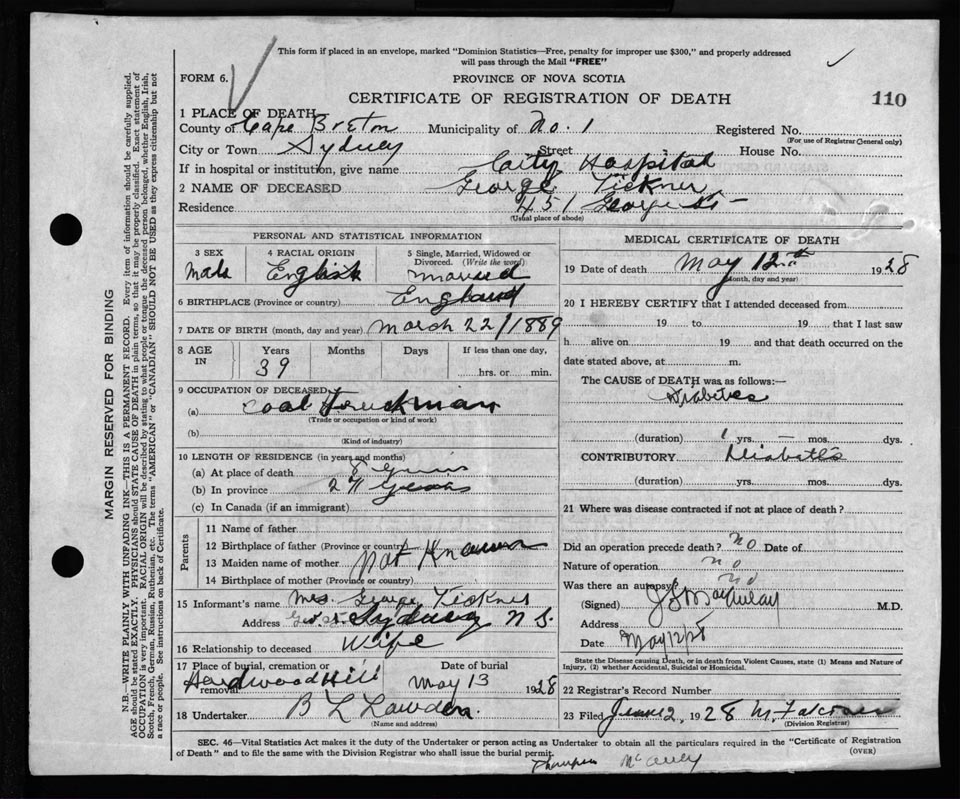 This form if placed in an envelope, marked "Dominion Statistics—Free, penalty for improper use $300," and properly addressed
will pass through the Mail "FREE"
FORM 6.
PROVINCE OF NOVA SCOTIA
CERTIFICATE OF REGISTRATION OF DEATH
110
1 PLACE OF DEATH
County of Cape Breton Municipality of No. 1 Registered No.
(For use of Registrar General only)
City or Town Sydney Street House No.
If in hospital or institution, give name City Hospital
2 NAME OF DECEASED George Tickner
Residence 451 George St
(Usual place of abode)
PERSONAL AND STATISTICAL INFORMATION
3 SEX 4 RACIAL ORIGIN 5 Single, Married, Widowed or Divorced. (Write the word)
Male English Married
6 BIRTHPLACE (Province or country) England
7 DATE OF BIRTH (month, day and year) March 22/1889
8 AGE IN Years Months Days If less than one day,
39 hrs. or min.
9 OCCUPATION OF DECEASED
(a) Coal Truckman
(Trade or occupation or kind of work)
(b)
(Kind of industry)
10 LENGTH OF RESIDENCE (in years and months)
(a) At place of death 8
(b) In province
(c) In Canada (if an immigrant)
Parents
11 Name of father
12 Birthplace of father (Province or country)
13 Maiden name of mother Not Known
14 Birthplace of mother (Province or country)
15 Informant's name Mrs. George Tickner
Address Sydney N S.
16 Relationship to deceased Wife
17 Place of burial, cremation or removal Date of burial
Hardwood Hill May 13 1928
18 Undertaker B L
(Name and address)
MEDICAL CERTIFICATE OF DEATH
19 Date of death May 12th 1928
(Month, day and year)
20 I HEREBY CERTIFY that I attended deceased from
19 to 19 that I last saw
h alive on 19 and that death occurred on the
date stated above, at m.
The CAUSE of DEATH was as follows:—
Diabetes
(duration) 1 yrs. — mos. dys.
CONTRIBUTORY Diabetes
(duration) yrs. mos. dys.
21 Where was disease contracted if not at place of death?
Did an operation precede death? no Date of
Nature of operation no
Was there an autopsy? no
(Signed) M.D.
Address
Date May 12/28
State the Disease causing Death, or in death from Violent Causes, state (1) Means and Nature of
Injury, (2) whether Accidental, Suicidal or Homicidal.
22 Registrar's Record Number
23 Filed June 2, 1928
(Division Registrar)
SEC. 46—Vital Statistics Act makes it the duty of the Undertaker or person acting as Undertaker to obtain all the particulars required in the "Certificate of Registration
of Death" and to file the same with the Division Registrar who shall issue the burial permit.
(OVER)
MARGIN RESERVED FOR BINDING
N.B.—WRITE PLAINLY WITH UNFADING INK—THIS IS A PERMANENT RECORD. Every item of information should be carefully supplied.
AGE should be stated EXACTLY. PHYSICIANS should STATE CAUSE OF DEATH in plain terms, so that it may be properly classified. Exact statement of
OCCUPATION is very important. RACIAL ORIGIN will be described by stating to what people or tongue the deceased person belonged, whether English, Irish,
Scotch, French, German, Russian, Ruthenian, etc. The terms "AMERICAN" or "CANADIAN" SHOULD NOT BE USED as they express citizenship but not
a race or people. See instructions on back of Certificate.